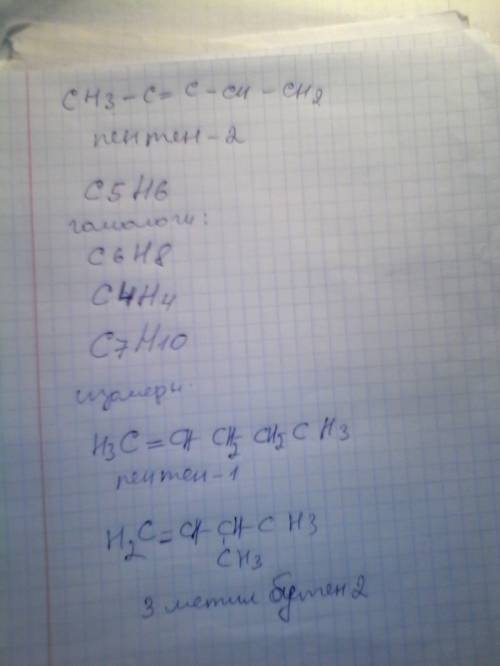 CH3 - C = C - CH - CH2
пентен - 2
C5H6
гомологи:
C6H8
C4H4
C7H10
изомеры
H3C = CH CH2 CH2 CH3
пентен - 1
H2C = CH - CH - CH3
CH3
3 метил бутен 2